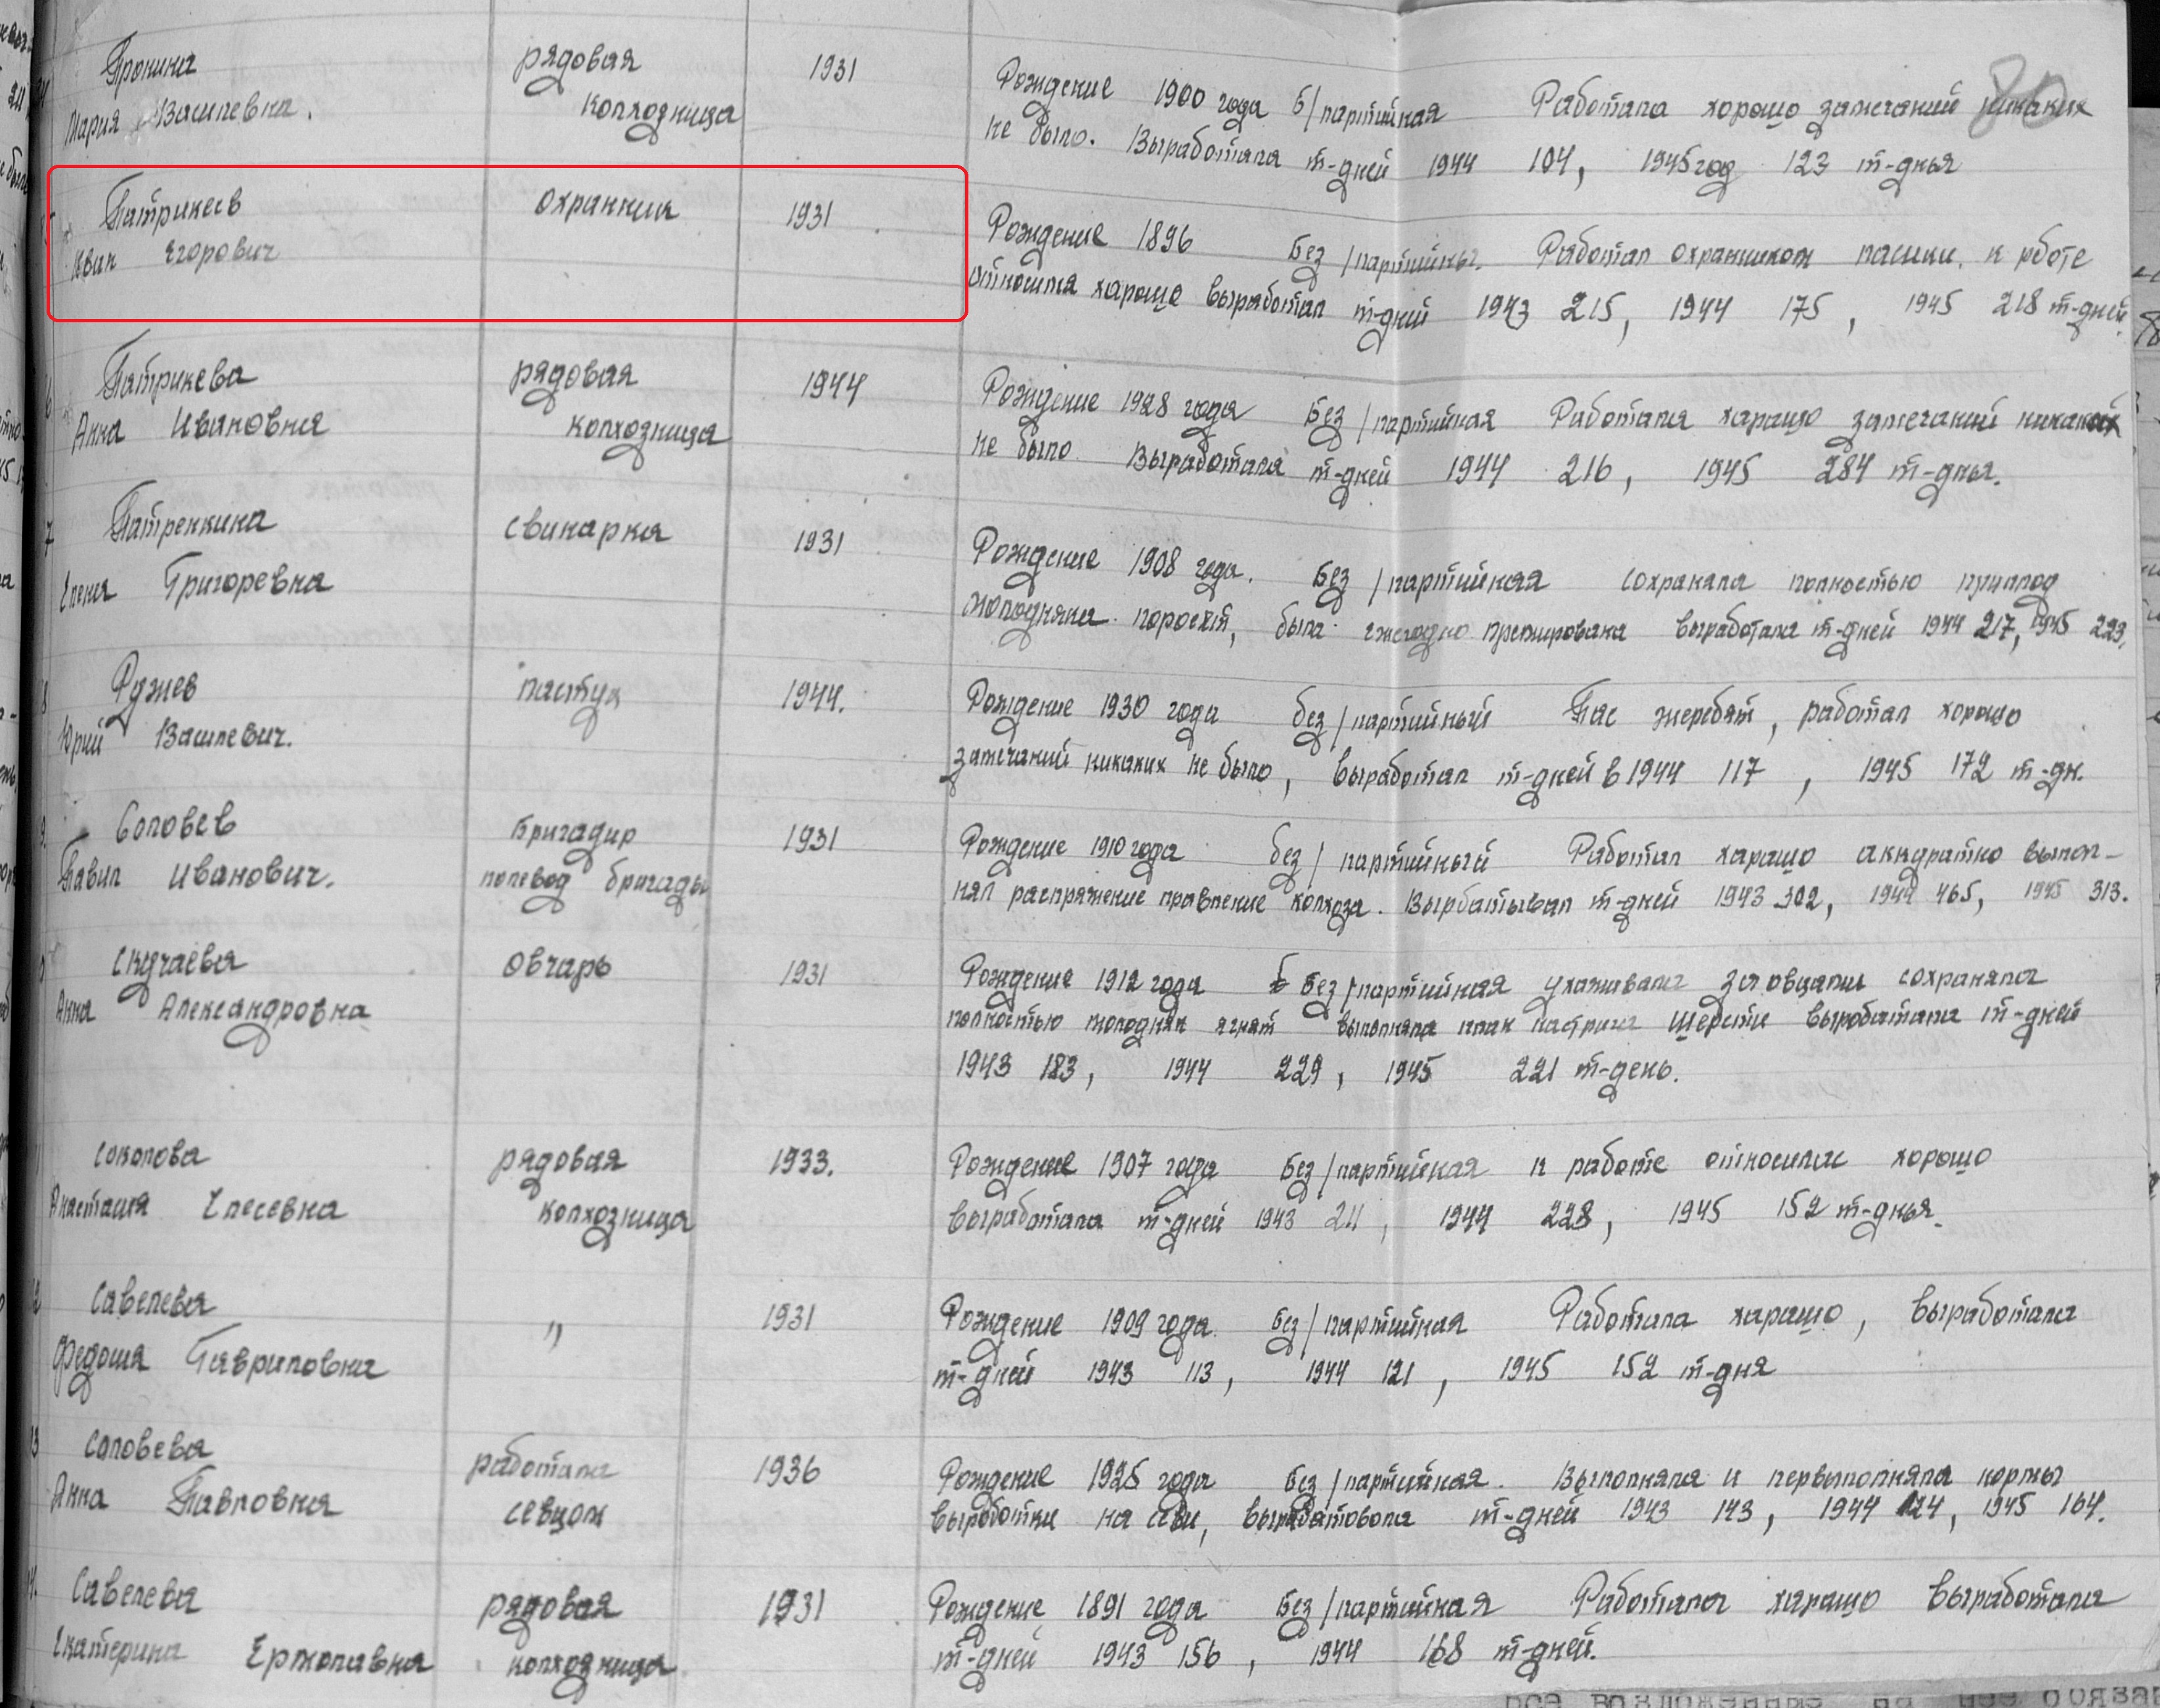 80
Пронина рядовая 1931 Рождение 1900 года Б/партийная Работала хорошо замечаний никаких
Мария Василевна. колхозница не было. Выработала т-дней 1944 104, 1945 год 123 т-дня
Патрикеев охранник 1931 Рождение 1896 Без/партийны. Работал охранником пасики. к рботе
Иван Егорович относился харошо выработал т-дний 1943 215, 1944 175, 1945 218 т-дней.
Патрикева рядовая 1944 Рождение 1928 года Без/партийная Работала харашо замечаний никаких
Анна Ивановна колхозница не было Выработала т-дней 1944 216, 1945 284 т-дня.
Патренкина свинарка 1931 Рождение 1908 года. Без/партийная сохраняла полностью приплод
Елена Григоревна молодняка поросят, была ежегодно премирована выработала т-дней 1944 217, 1945 223.
Ружев пастух 1944. Рождение 1930 года без/партийный Пас жеребят, работал хорошо
Юрий Василевич. замечаний никаких не было, выработал т-дней в 1944 117, 1945 172 т-дн.
Соловев Бригадир 1931 Рождение 1910 года без/партийный Работал харашо аккуратно выпол-
Павил Иванович. полевод бригады нял распряжение правление колхоза. Вырбатывал т-дней 1943 302, 1944 465, 1945 313.
Скучаева овчарь 1931 Рождение 1912 года Без/партийная ухаживала за овцами сохраняла
Анна Александровна полностью молодняк ягнят выполняла план настрига шерсти выработала т-дней
1943 183, 1944 229, 1945 221 т-день.
Соколова рядовая 1933. Рождение 1907 года Без/партийная к работе относилась хорошо
Анастасия Елесевна колхозница выработала т-дней 1943 211, 1944 228, 1945 152 т-дня.
Савелева " 1931 Рождение 1909 года Без/партийная Работала харашо, выработала
Федосия Гавриловна т-дней 1943 113, 1944 121, 1945 152 т-дня
Соловева работала 1936 Рождение 1925 года Без/партийная. Выполняла и первыполняла нормы
Анна Павловна севцом выработки на севи, вырабатовала т-дней 1943 143, 1944 124, 1945 164.
Савелева рядовая 1931 Рождение 1891 года Без/партийная Работала харашо выработала
Екатерина Ермолавна колхозница т-дней 1943 156, 1944 168 т-дней.
все возложенные на нее обязан